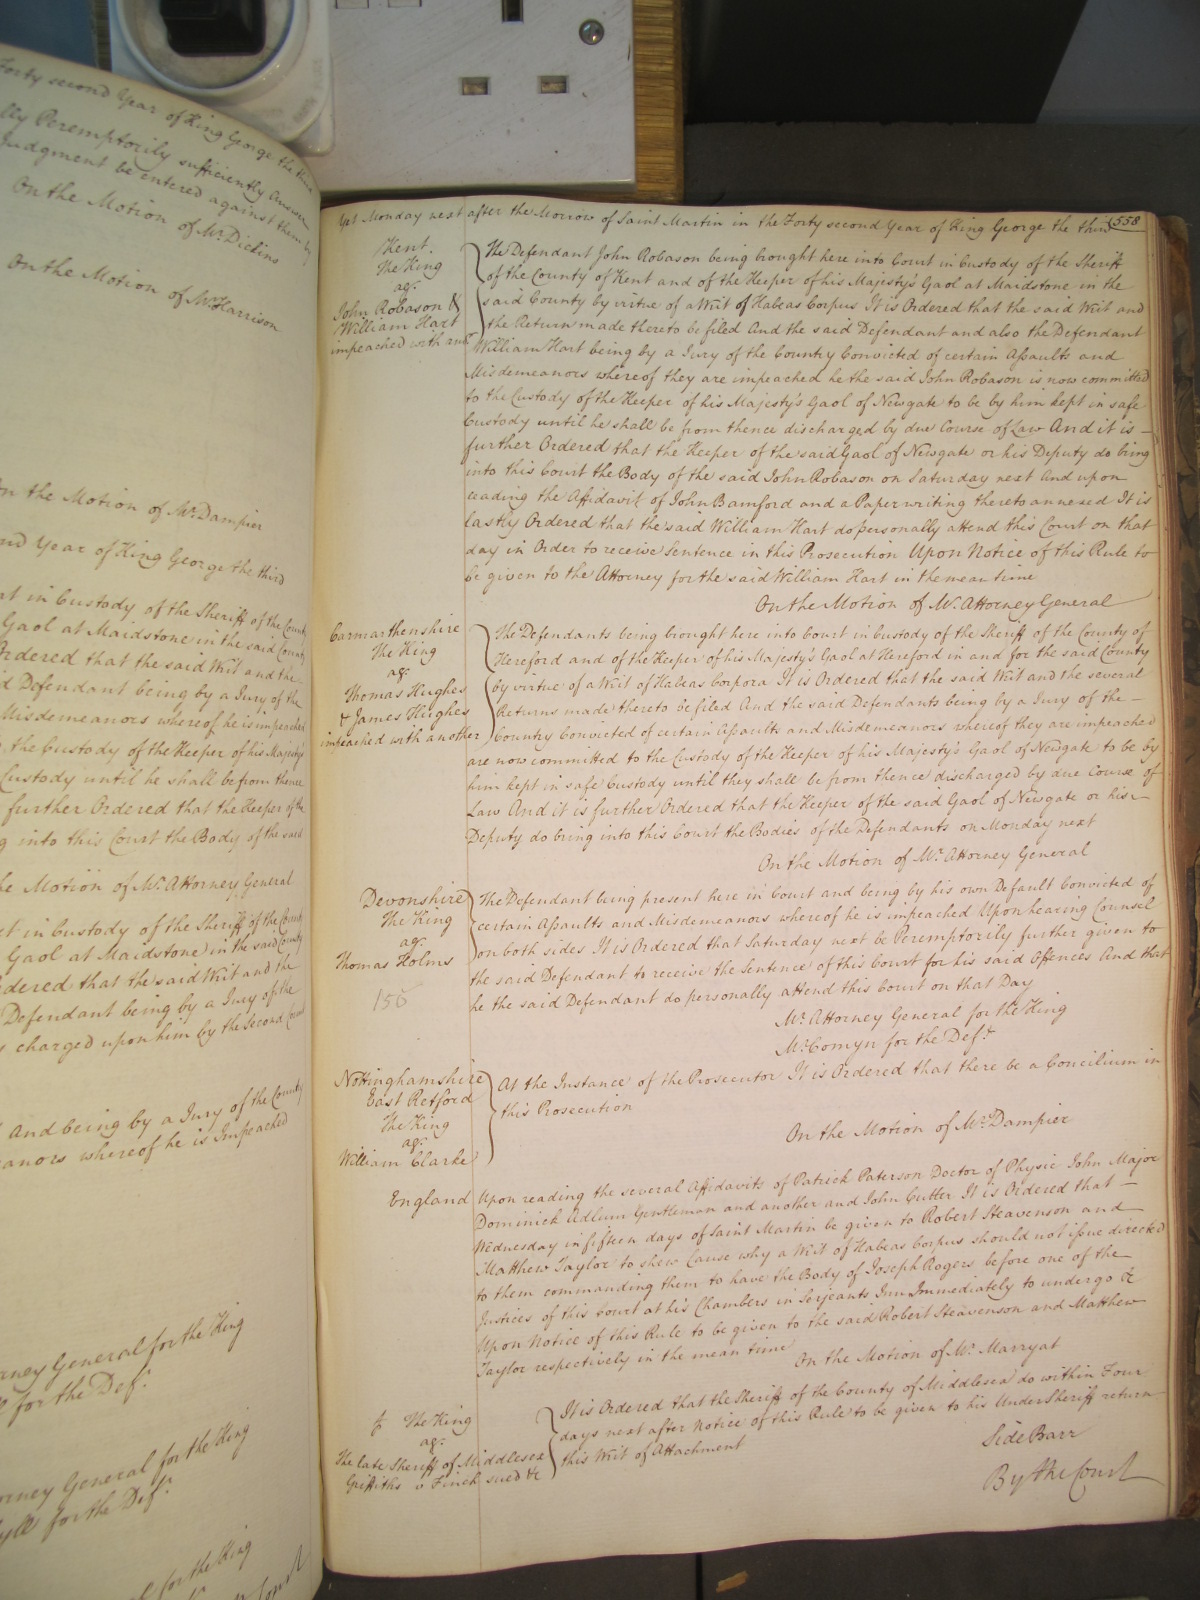 Forty second Year of King George the third
lly Peremptorily sufficiently answer
Judgment be entered against them by
On the Motion of Mr. Dickins
On the Motion of Mr. Harrison
On the Motion of Mr. Dampier
Year of King George the third
in Custody of the Sheriff of the County
Gaol at Maidstone in the said County
Ordered that the said Writ and the
Defendant being by a Jury of the
Misdemeanors whereof he is impeached
the Custody of the Keeper of his Majesty's
Custody until he shall be from thence
further Ordered that the Keeper of the
into this Court the Body of the said
Motion of Mr. Attorney General
in Custody of the Sheriff of the County
Gaol at Maidstone in the said County
dered that the said Writ and the
Defendant being by a Jury of the
charged upon him by the Second Count
And being by a Jury of the County
eanors whereof he is Impeached
rney General for the King
for the Def.t
rney General for the King
for the Def.t
for the King
Yet Monday next after the Morrow of Saint Martin in the Forty second Year of King George the third 558
Kent.
The King
ag.t
John Robason &
William Hart
impeached with
The Defendant John Robason being brought here into Court in Custody of the Sheriff
of the County of Kent and of the Keeper of his Majesty's Gaol at Maidstone in the
said County by virtue of a Writ of Habeas Corpus It is Ordered that the said Writ and
the Return made thereto be filed And the said Defendant and also the Defendant
William Hart being by a Jury of the Country Convicted of certain Assaults and
Misdemeanors whereof they are impeached he the said John Robason is now committed
to the Custody of the Keeper of his Majesty's Gaol of Newgate to be by him kept in safe
Custody until he shall be from thence discharged by due Course of Law And it is
further Ordered that the Keeper of the said Gaol of Newgate or his Deputy do bring
into this Court the Body of the said John Robason on Saturday next And upon
reading the Affidavit of John Bamford and a Paper writing thereto annexed It is
lastly Ordered that the said William Hart do personally attend this Court on that
day in Order to receive Sentence in this Prosecution Upon Notice of this Rule to
be given to the Attorney for the said William Hart in the mean time
On the Motion of Mr. Attorney General
Carmarthenshire
The King
ag.t
Thomas Hughes
& James Hughes
impeached with another
The Defendants being brought here into Court in Custody of the Sheriff of the County of
Hereford and of the Keeper of his Majesty's Gaol at Hereford in and for the said County
by virtue of a Writ of Habeas Corpora It is Ordered that the said Writ and the several
Returns made thereto be filed And the said Defendants being by a Jury of the
Country Convicted of certain Assaults and Misdemeanors whereof they are impeached
are now committed to the Custody of the Keeper of his Majesty's Gaol of Newgate to be by
him kept in safe Custody until they shall be from thence discharged by due Course of
Law And it is further Ordered that the Keeper of the said Gaol of Newgate or his
Deputy do bring into this Court the Bodies of the Defendants on Monday next
On the Motion of Mr. Attorney General
Devonshire
The King
ag.t
Thomas Holms
The Defendant being present here in Court and being by his own Default Convicted of
certain Assaults and Misdemeanors whereof he is impeached Upon hearing Counsel
on both sides It is Ordered that Saturday next be Peremptorily further given to
the said Defendant to receive the Sentence of this Court for his said Offences And that
he the said Defendant do personally attend this Court on that Day
Mr. Attorney General for the King
Mr. Comyn for the Def.t
Nottinghamshire
East Retford
The King
ag.t
William Clarke
At the Instance of the Prosecutor It is Ordered that there be a Concilium in
this Prosecution
On the Motion of Mr. Dampier
England
Upon reading the several Affidavits of Patrick Paterson Doctor of Physic John Major
Dominick Adlum Gentleman and another and John Cutler It is Ordered that
Wednesday in fifteen days of Saint Martin be given to Robert Steavenson and
Matthew Taylor to shew Cause why a Writ of Habeas Corpus should not issue directed
to them commanding them to have the Body of Joseph Rogers before one of the
Justices of this Court at his Chambers in Serjeants Inn Immediately to undergo &c
Upon Notice of this Rule to be given to the said Robert Steavenson and Matthew
Taylor respectively in the mean time
On the Motion of Mr. Marryat
The King
ag.t
The late Sheriff of Middlesex
Griffiths v Finch sued &c
It is Ordered that the Sheriff of the County of Middlesex do within Four
days next after Notice of this Rule to be given to his Under Sheriff return
this Writ of Attachment
Side Barr
By the Court